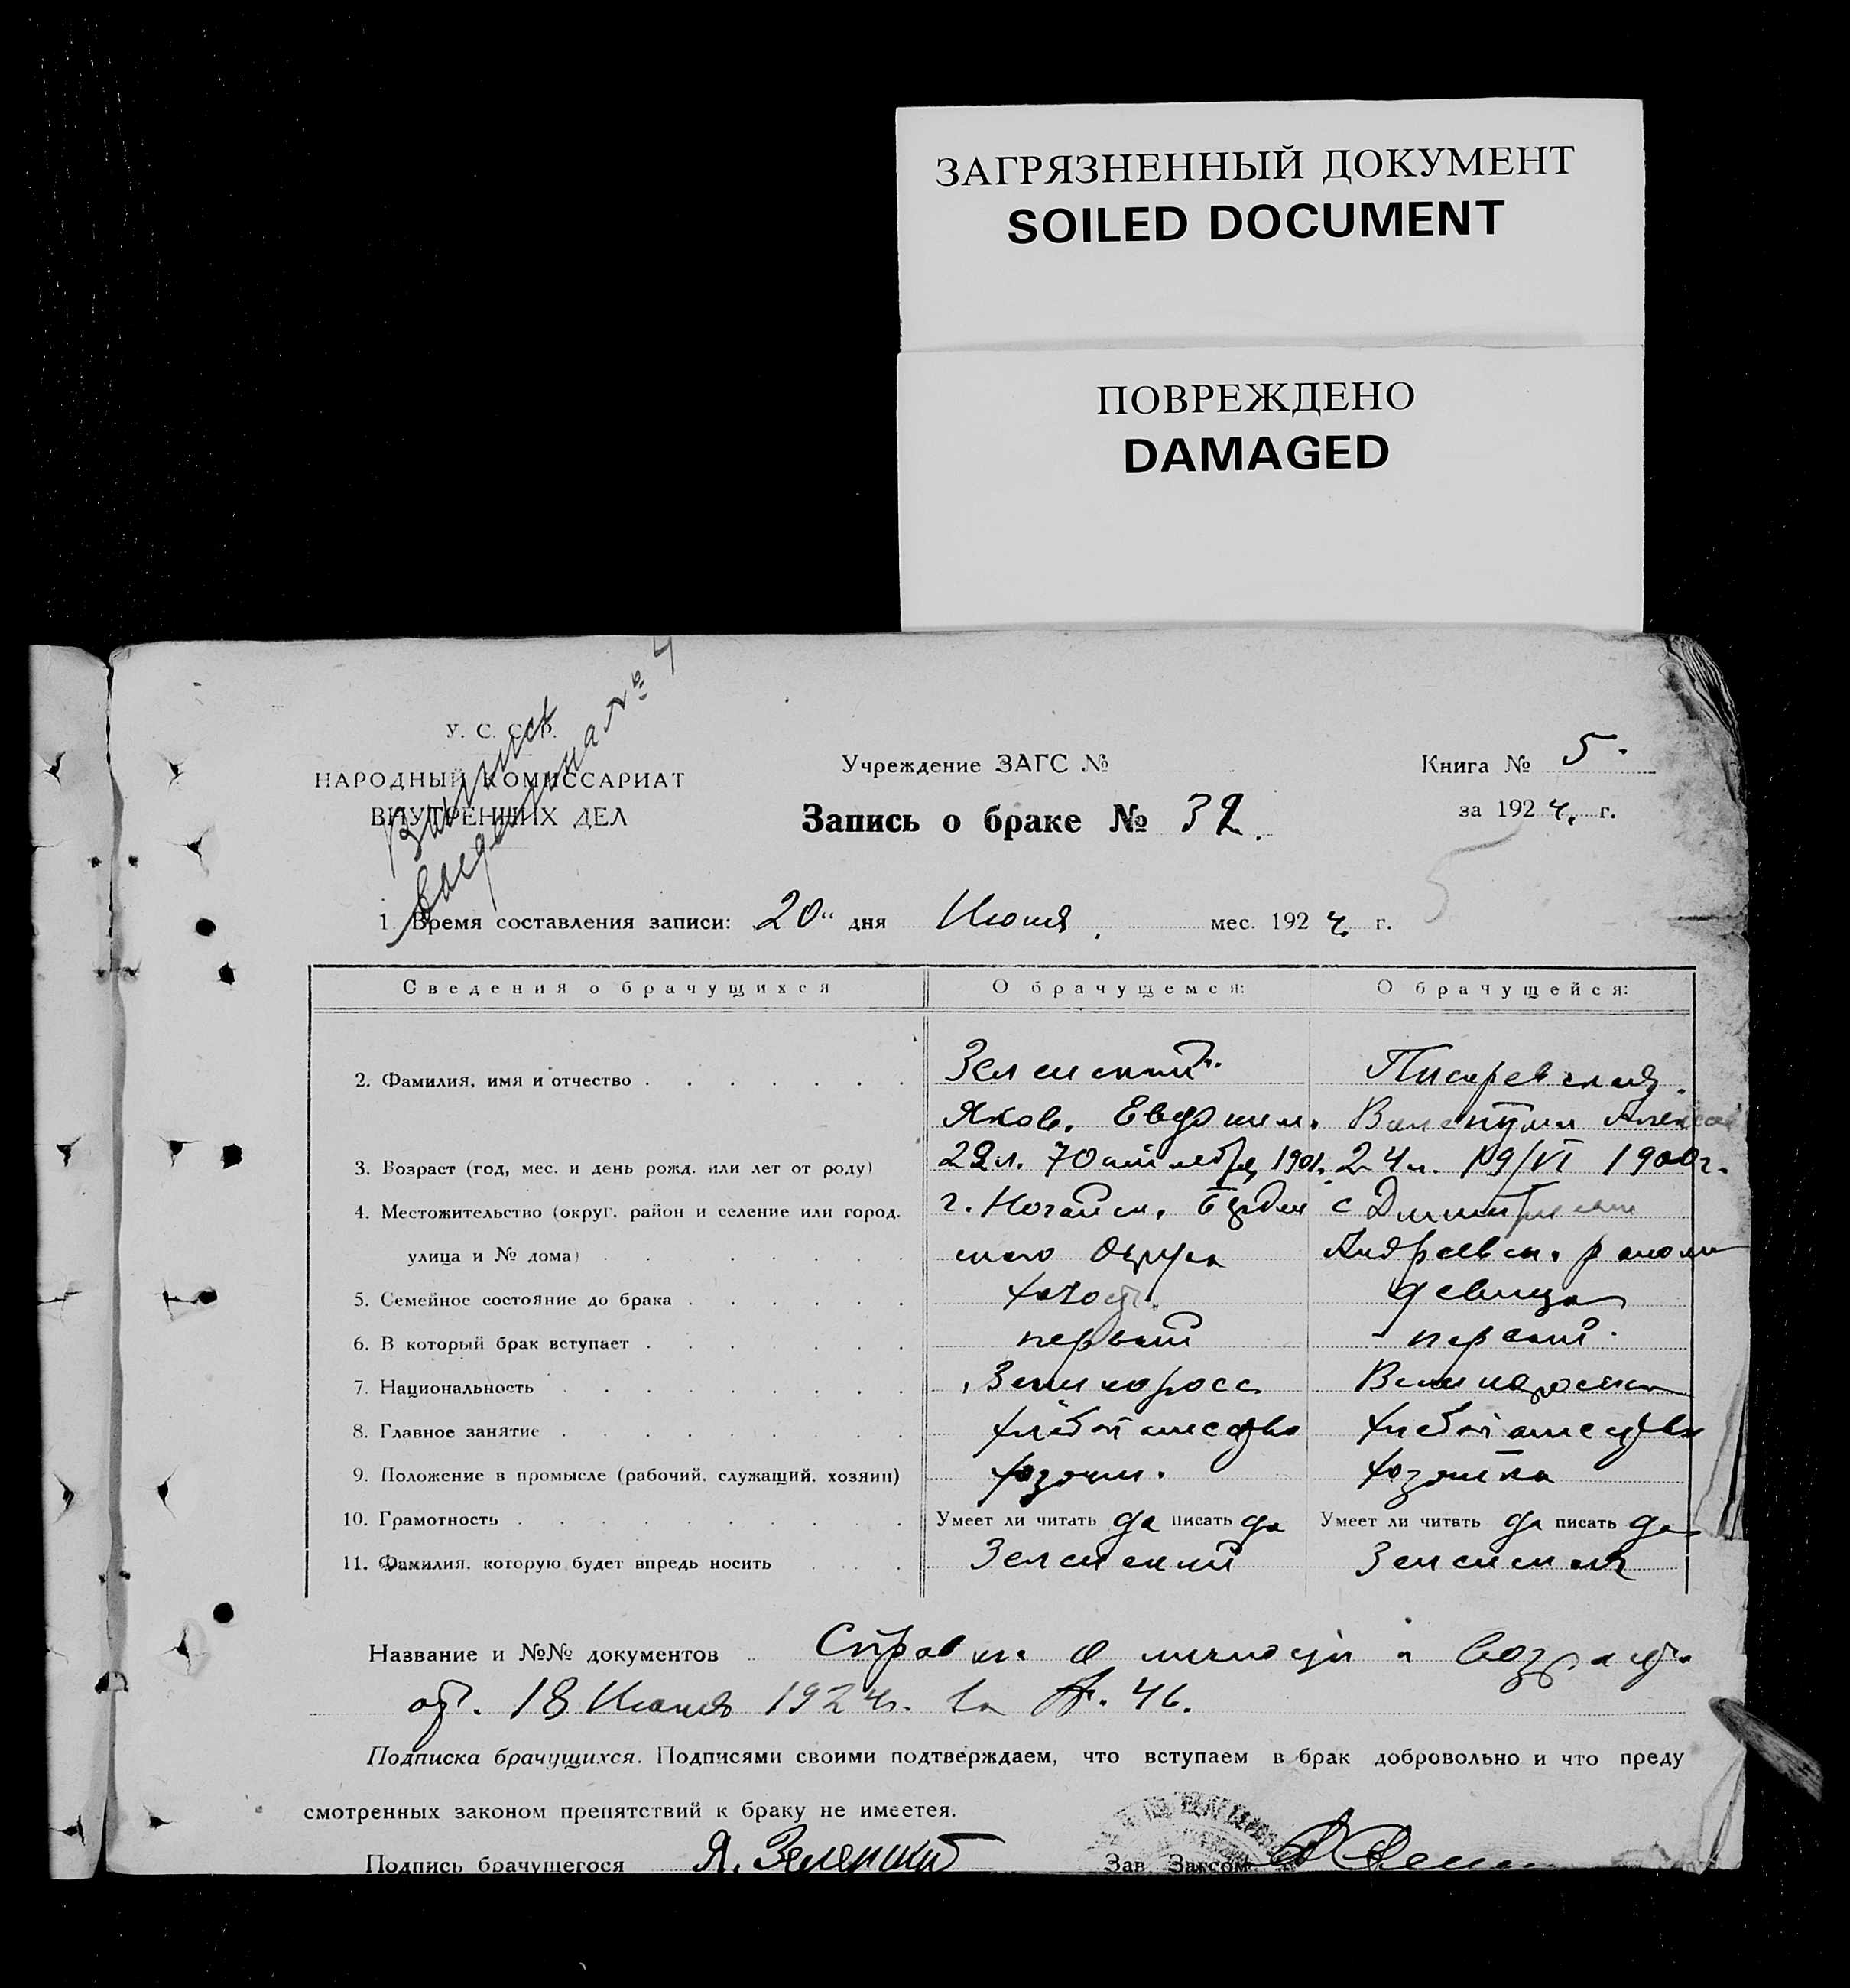 ЗАГРЯЗНЕННЫЙ ДОКУМЕНТ
SOILED DOCUMENT
ПОВРЕЖДЕНО
DAMAGED
У. С. С. Р.
НАРОДНЫЙ КОМИССАРИАТ
ВНУТРЕННИХ ДЕЛ
Учреждение ЗАГС №
Книга № 5.
Запись о браке № 32.
за 1924. г.
№ 4
1. Время составления записи: 20" дня Июня. мес. 1924 г.
Сведения о брачущихся О брачущемся: О брачущейся:
2. Фамилия, имя и отчество Зеленский Писаревская
Яков. Евдоким. Валентина Алексе
3. Возраст (год, мес. и день рожд. или лет от роду) 22л. 1901. 24л. 19/VI 1900г.
4. Местожительство (округ, район и селение или город, г. Ногайск, с
улица и № дома) ского Округа Андреевск. района
5. Семейное состояние до брака холост. девица
6. В который брак вступает первый первый.
7. Национальность Великоросс Великоросска
8. Главное занятие хлебопашество хлебопашество
9. Положение в промысле (рабочий, служащий, хозяин) хозяин. хозяйка
10. Грамотность Умеет ли читать да писать да Умеет ли читать да писать да
11. Фамилия, которую будет впредь носить Зеленский Зеленская
Название и №№ документов Справка о личности и возрасте
от. 18 Июня 1924г. за №. 46.
Подписка брачущихся. Подписями своими подтверждаем, что вступаем в брак добровольно и что преду
смотренных законом препятствий к браку не имеется.
Подпись брачущегося Я. Зеленский Зав. Загсом